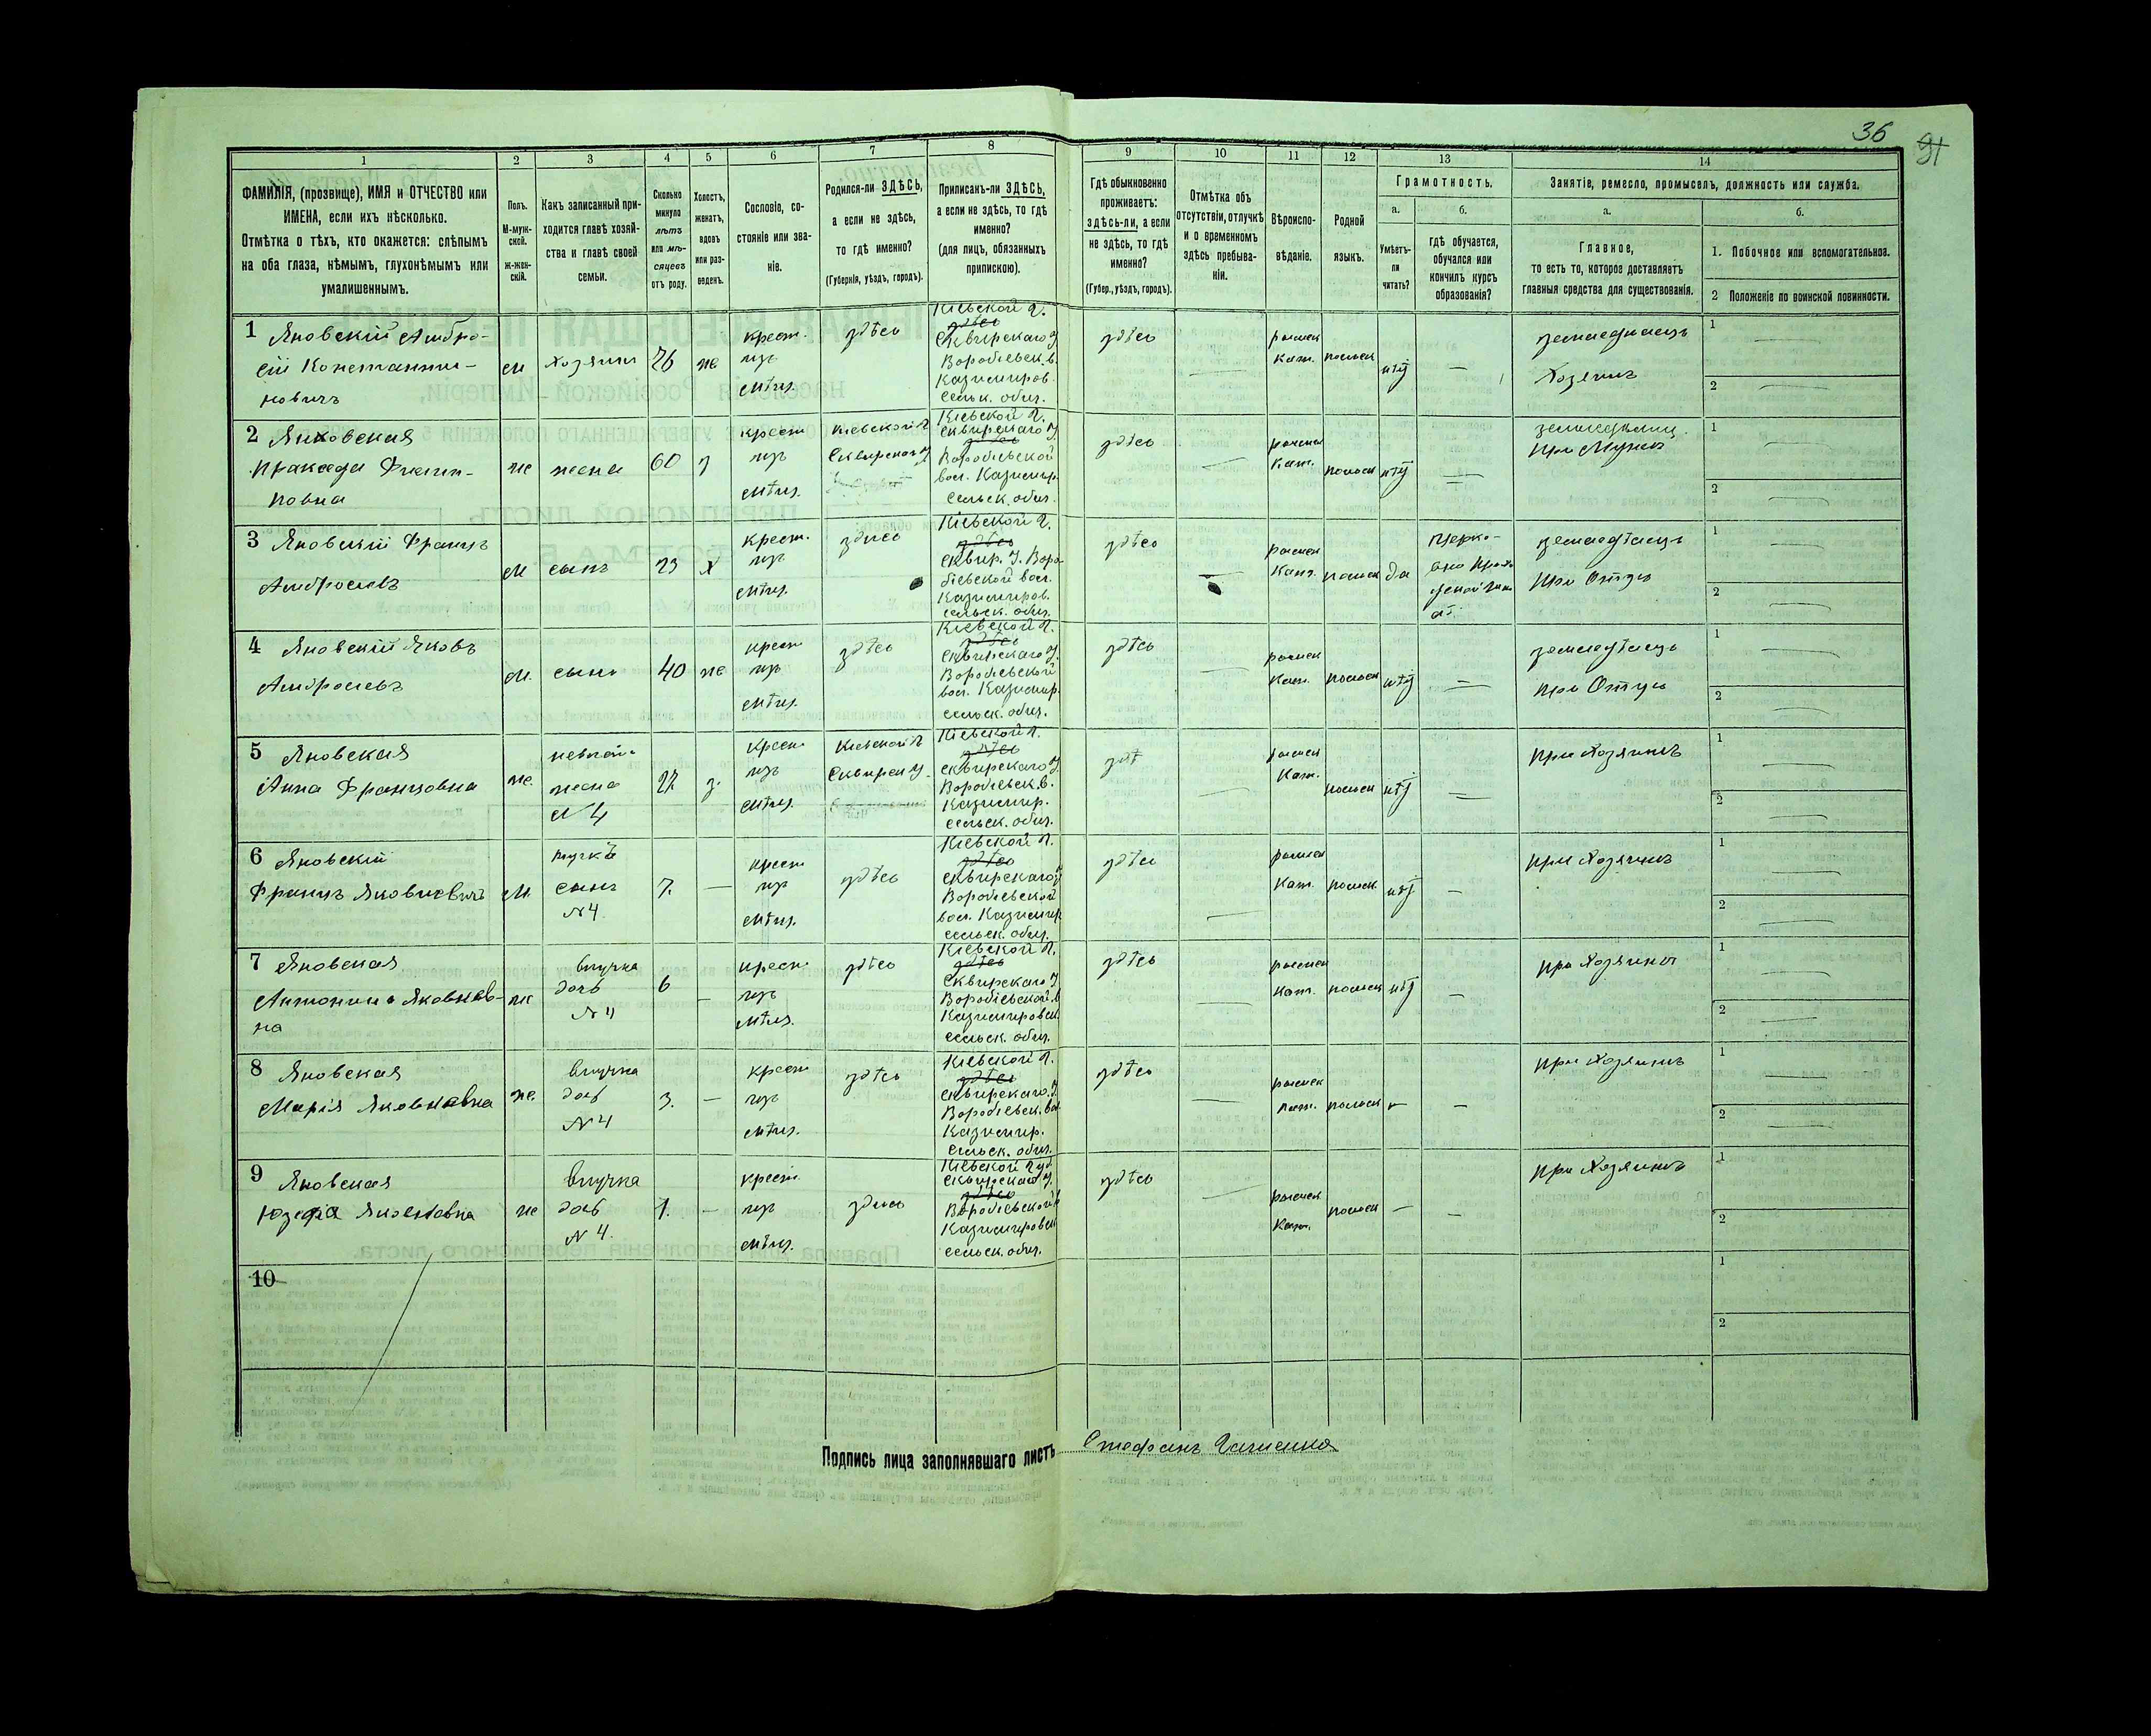 36
91
1
2
3
4
5
6
7
8
9
10
11
12
13
14
ФАМИЛІЯ, (прозвище), ИМЯ и ОТЧЕСТВО или
ИМЕНА, если ихъ нѣсколько.
Отмѣтка о тѣхъ, кто окажется: слѣпымъ
на оба глаза, нѣмымъ, глухонѣмымъ или
умалишеннымъ.
Полъ.
М-муж-
ской.
Ж-жен-
скій.
Какъ записанный при-
ходится главѣ хозяй-
ства и главѣ своей
семьи.
Сколько
минуло
лѣтъ
или мѣ-
сяцевъ
отъ роду.
Холостъ,
женатъ,
вдовъ
или раз-
веденъ.
Сословіе, со-
стояніе или зва-
ніе.
Родился-ли ЗДѢСЬ,
а если не здѣсь,
то гдѣ именно?
(Губернія, уѣздъ, городъ).
Приписанъ-ли ЗДѢСЬ,
а если не здѣсь, то гдѣ
именно?
(для лицъ, обязанныхъ
припискою).
Гдѣ обыкновенно
проживаетъ:
здѣсь-ли, а если
не здѣсь, то гдѣ
именно?
(Губер., уѣздъ, городъ).
Отмѣтка объ
отсутствіи, отлучкѣ
и о временномъ
здѣсь пребыва-
ніи.
Вѣроиспо-
вѣданіе.
Родной
языкъ.
Грамотность.
а.
Умѣетъ-
ли
читать?
б.
гдѣ обучается,
обучался или
кончилъ курсъ
образованія?
Занятіе, ремесло, промыселъ, должность или служба.
а.
Главное,
то есть то, которое доставляетъ
главныя средства для существованія.
б.
1. Побочное или вспомогательное.
2 Положеніе по воинской повинности.
1 Яновскій Амбро-
сій Константи-
новичъ
м
хозяинъ
76
же
крест.
изъ
мѣщ.
здѣсь
Кіевской г.
здѣсь
Сквирскаго у.
Воробіевск. в.
Казимиров.
сельск. общ.
здѣсь
римск
кат.
польск
нѣтъ
земледѣлецъ
Хозяинъ
1
2
2 Яновская
Пракседа Филип-
повна
же
жена
60
з
крест
изъ
мѣщ.
Кіевской г
Сквирскаго у
Кіевской г.
Сквирскаго у.
здѣсь
Воробіевской
вол. Казимир.
сельск. общ.
здѣсь
римск
кат.
польск
нѣтъ
земледѣлиц.
при Мужѣ
1
2
3 Яновскій Францъ
Амбросіевъ
м
сынъ
23
х
крест.
изъ
мѣщ.
здѣсь
Кіевской г.
здѣсь
Сквир. у. Воро-
біевской вол.
Казимиров.
сельск. общ.
здѣсь
римск
кат.
польск
да
земледѣлецъ
при Отцѣ
1
2
4 Яновскій Яковъ
Амбросіевъ
м.
сынъ
40
же
крест
изъ
мѣщ.
здѣсь
Кіевской г.
здѣсь
Сквирскаго у.
Воробіевской
вол. Казимир.
сельск. общ.
здѣсь
римск
кат.
польск
нѣтъ
земледѣлецъ
при Отцѣ
1
2
5 Яновская
Анна Францовна
же.
жена
N 4
27
з.
крест
изъ
мѣщ.
Кіевской г
Сквирск у.
Кіевской г.
здѣсь
Сквирскаго у.
Воробіевск. в.
Казимир.
сельск. общ.
римск
кат.
польск
нѣтъ
при хозяинѣ
1
2
6 Яновскій
Францъ Яковлевичъ
м.
сынъ
N 4.
7.
крест
изъ
мѣщ.
здѣсь
Кіевской г.
здѣсь
Сквирскаго у
Воробіевской
вол. Казимир
сельск. общ.
здѣсь
римск
кат.
польск.
нѣтъ
при хозяинѣ
1
2
7 Яновская
Антонина Яковлев-
на
же
внучка
дочь
N 4
6
крест
изъ
мѣщ.
здѣсь
Кіевской г.
здѣсь
Сквирскаго у
Воробіевской в
Казимировск.
сельск. общ.
здѣсь
римск
кат.
польск
нѣтъ
при хозяинѣ
1
2
8 Яновская
Марія Яковлевна
же.
внучка
дочь
N 4
3.
крест
изъ
мѣщ.
здѣсь
Кіевской г.
здѣсь
Сквирскаго у.
Воробіевск. вол
Казимир.
сельск. общ.
здѣсь
римск
кат.
польск
при хозяинѣ
1
2
9 Яновская
Юзефа Яковлевна
же
внучка
дочь
N 4.
1.
крест.
изъ
мѣщ.
здѣсь
Кіевской губ
Сквирскаго у.
здѣсь
Воробіевской в
Казимировск
сельск. общ.
здѣсь
римск
кат.
польск
при хозяинѣ
1
2
10
1
2
Подпись лица заполнявшаго листъ